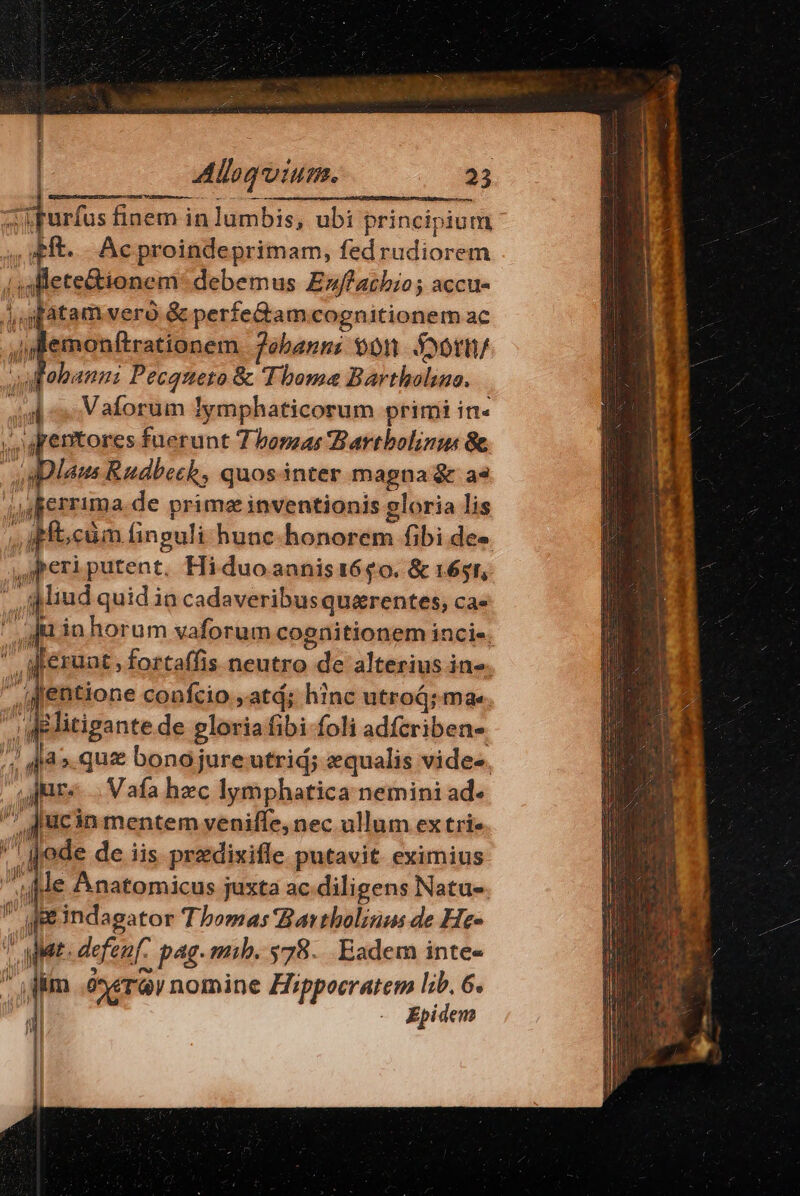 Alloquium. 23
rurſus finem in lumbis, ubi principium
eſt. Ac proinde primam, ſed rudiorem
detectionem debemus Euſtachio; accu-
ratam verò & perfectam cognitionem ac
demonſtrationem Johanni von Horn/
Johanni Pecqueto & Thomæ Bartholino.
Vaſorum lymphaticorum primi in-
ventores fuerunt Thomas Bartholinus &
Olaus Rudbeck, quos inter magna & a-
cerrima de primæ inventionis gloria lis
eſt, cùm ſinguli hunc honorem ſibi de-
beri putent. Hi duo annis 1650. & 1651,
aliud quid in cadaveribus quærentes, ca-
ſu in horum vaſorum cognitionem inci-
derunt, fortaſſis neutro de alterius in-
tentione conſcio, atq; hinc utroq; ma-
lè litigante de gloria ſibi ſoli adſcriben-
da, quæ bono jure utriq; æqualis vide-
tur. Vaſa hæc lymphatica nemini ad-
huc in mentem veniſſe, nec ullum ex tri-
pode de iis prædixiſſe putavit eximius
ille Anatomicus juxta ac diligens Natu-
ræ indagator Thomas Bartholinus de He-
pat. defenſ. pag. mih. 578. Eadem inte-
rim ὀχετῶν nomine Hippocratem lib. 6.
Epidem